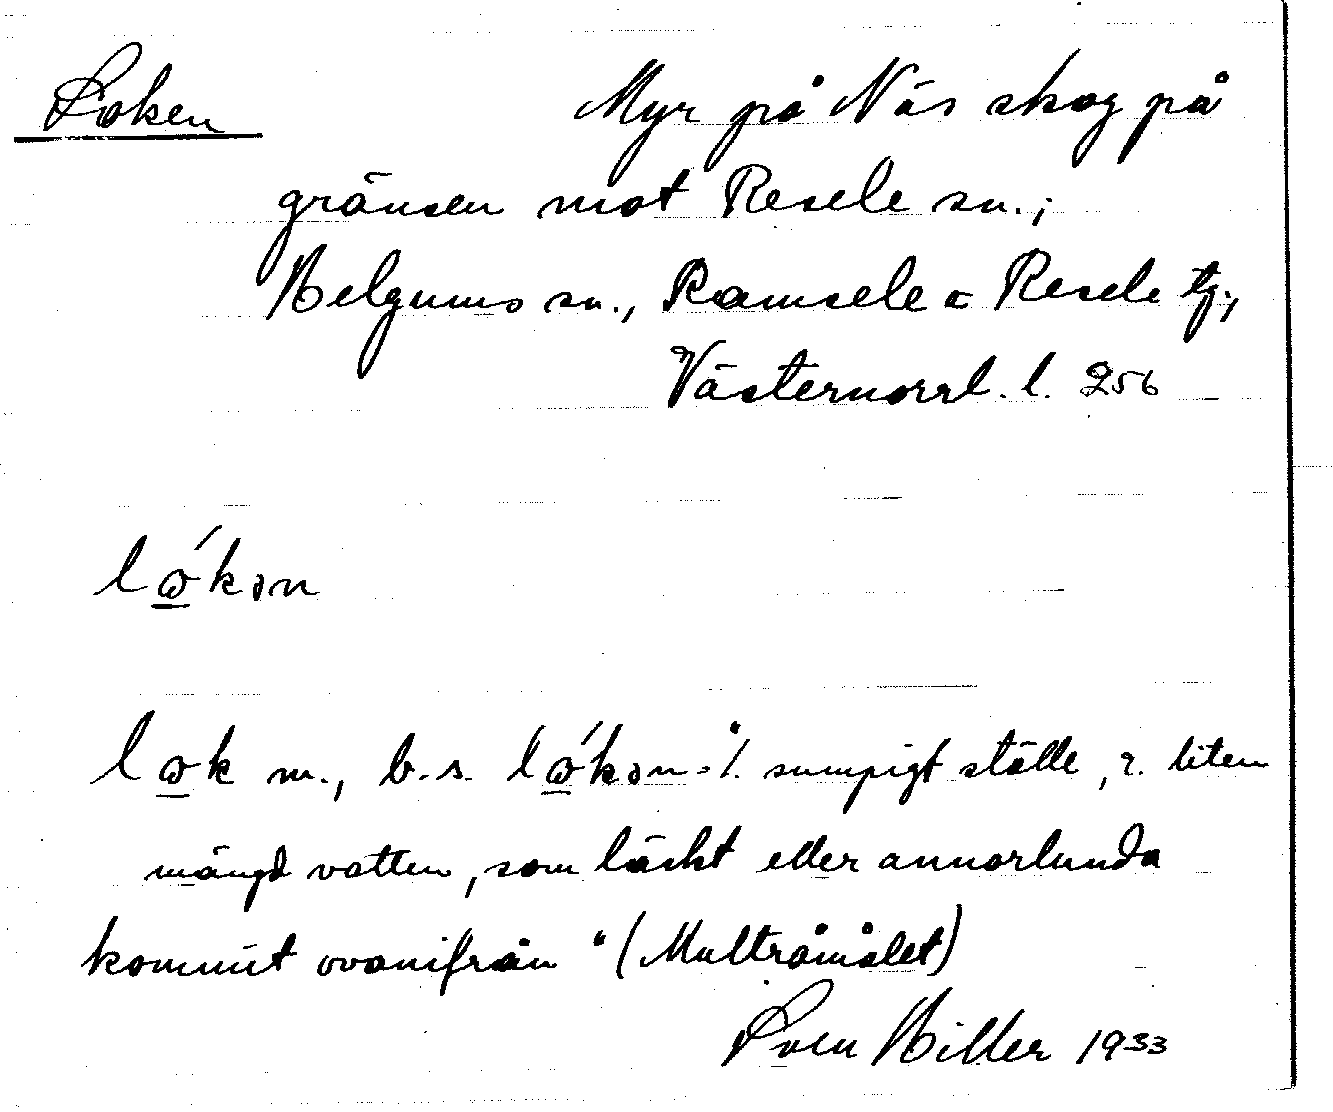 Loken Myr på Näs skog på
gränsen mot Resele sn.;
Helgums sn., Ramsele o Resele tg.,
Västernorrl. l. 256
ló̲kən
lo̲k m., b.s. ló̲kən ". sumpigt ställe, liten
mängd vatten, som läckt eller annorlunda
kommit ovanifrån" (Multråmålet)
Sven Hiller 1933